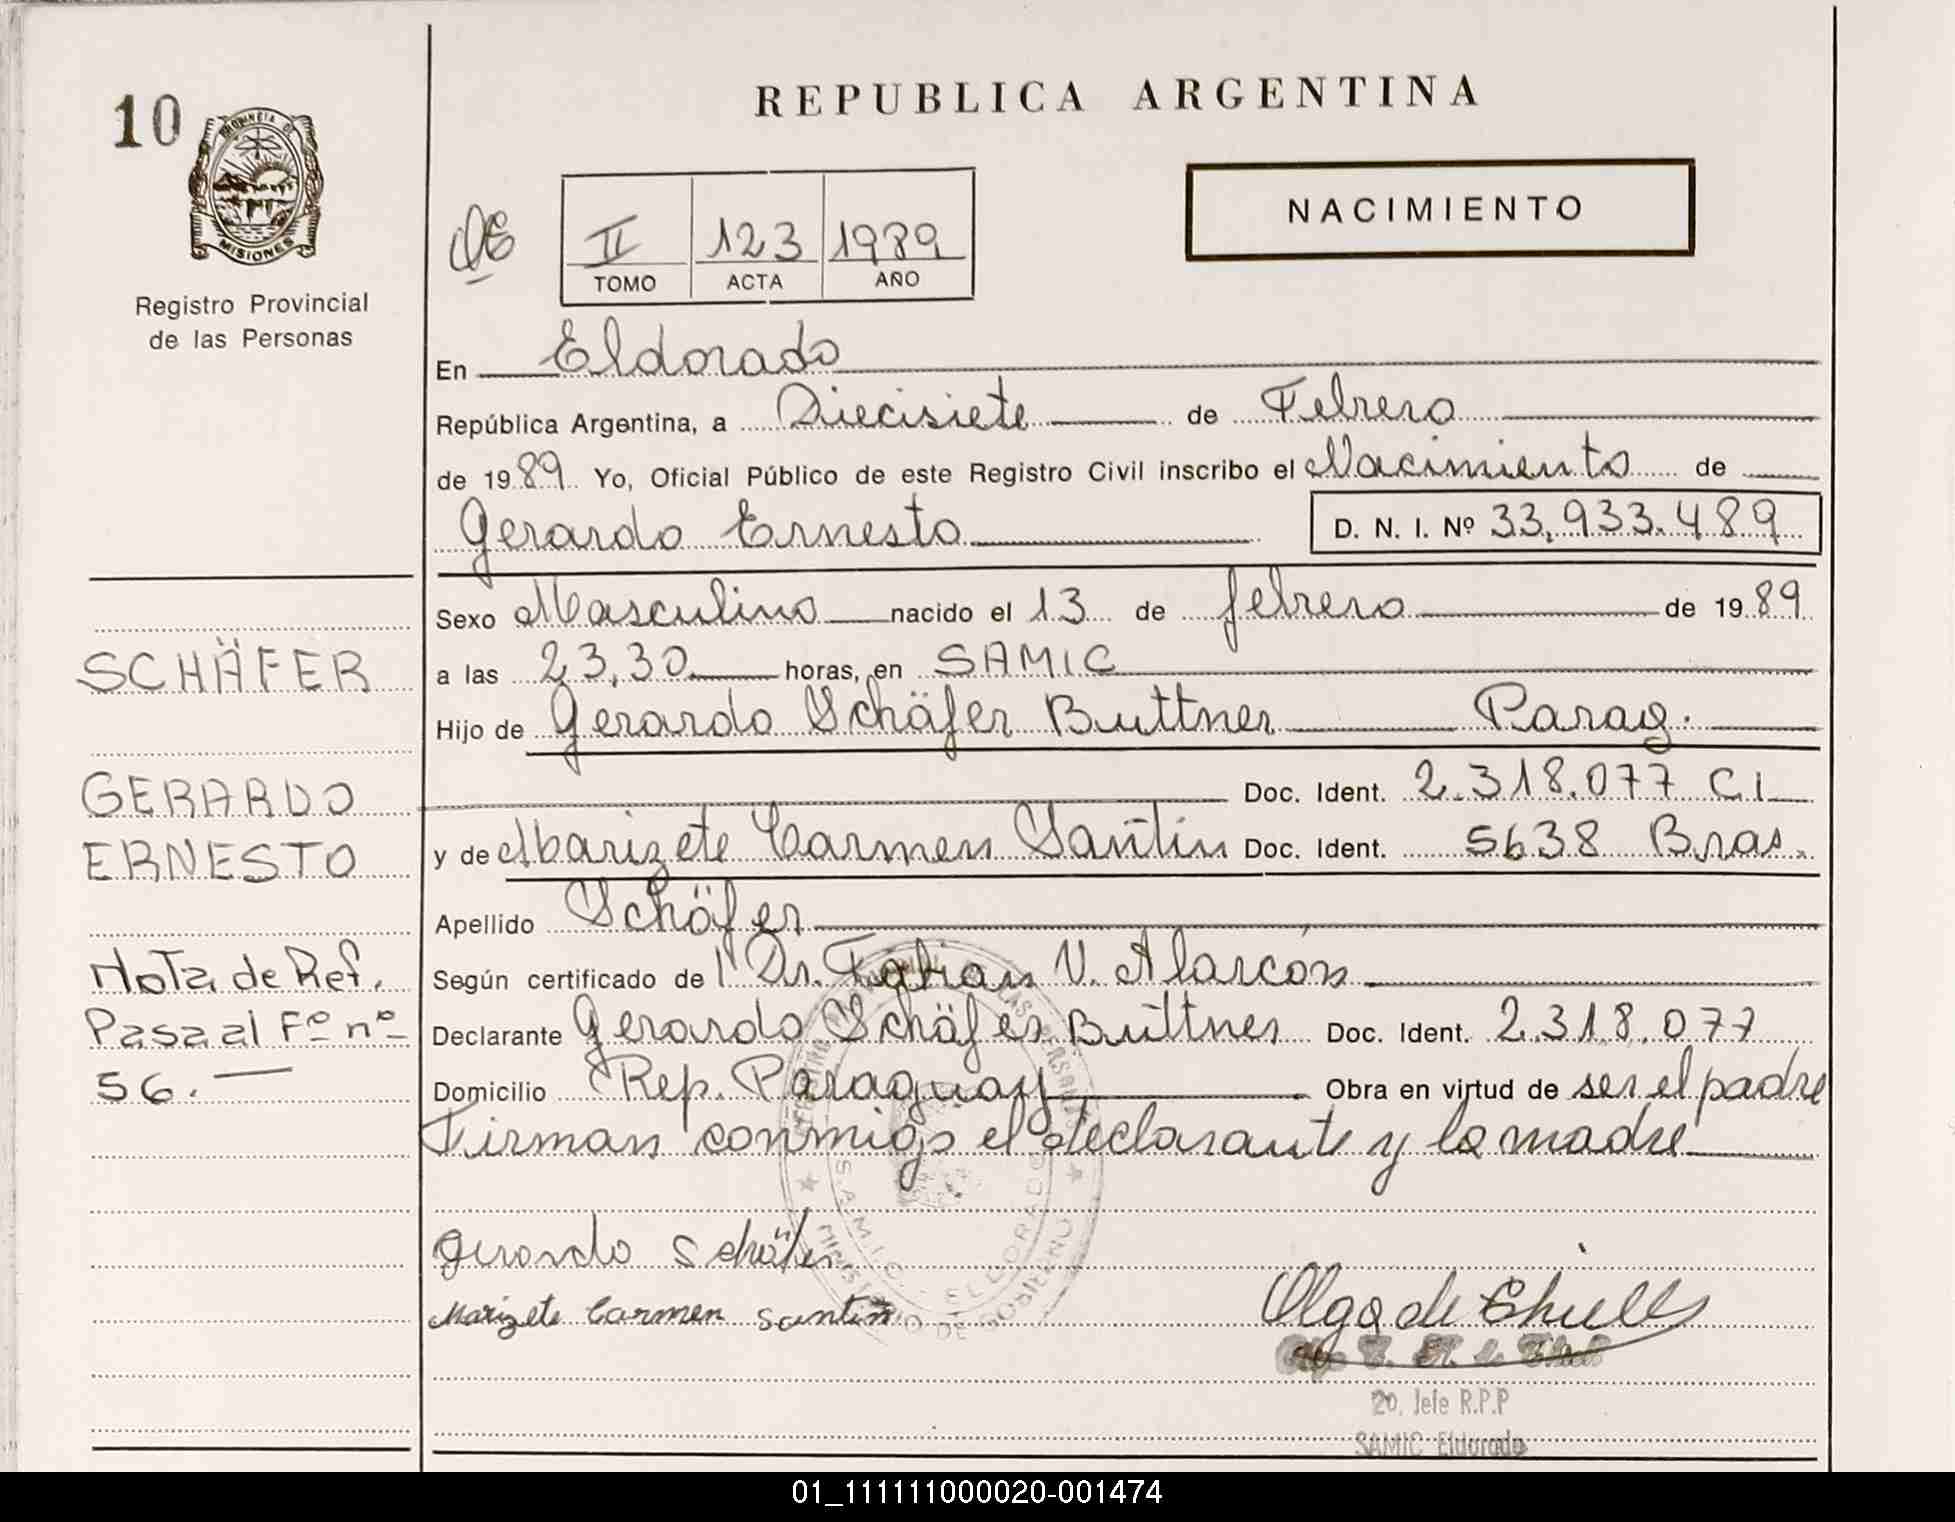 10
PROVINCIA DE
MISIONES
Registro Provincial
de las Personas
REPUBLICA ARGENTINA
NACIMIENTO
II 123 1989
TOMO ACTA AÑO
En Eldorado
República Argentina, a Diecisiete de Febrero
de 1989 Yo, Oficial Público de este Registro Civil inscribo el Nacimiento de
Gerardo Ernesto D. N. I. Nº 33.933.489
Sexo Masculino nacido el 13 de febrero de 1989
a las 23,30 horas, en SAMIC
Hijo de Gerardo Schäfer Buttner Parag.
Doc. Ident. 2.318.077 CI
y de Marizete Carmen Santin Doc. Ident. 5638 Bras.
Apellido Schäfer
Según certificado de l Dr. Fabian V. Alarcón
Declarante Gerardo Schäfer Buttner Doc. Ident. 2.318.077
Domicilio Rep. Paraguay Obra en virtud de ser el padre
Firman conmigo el declarante y la madre
SCHÄFER
GERARDO
ERNESTO
Nota de Ref.
Pasa al Fº nº
56.
Gerardo Schäfer
Marizete Carmen Santin
MINISTERIO DE GOBIERNO
S.A.M.I.C. ELDORADO
Olga de
2o. Jefe R.P.P
SAMIC Eldorado
01_111111000020-001474